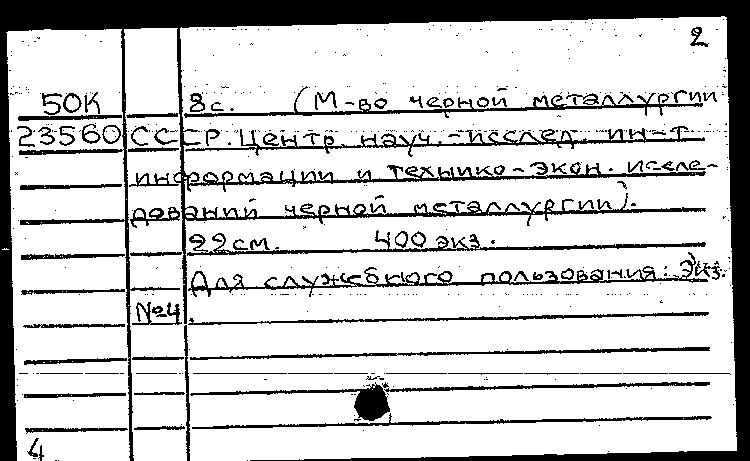 2
50К 8с. (М-во черной металлургии
23560 СССР. Центр. науч.-исслед. ин-т
информации и технико-экон. иссле-
дований черной металлургии).
22см. 400 экз.
Для служебного пользования: Экз.
№4.
4